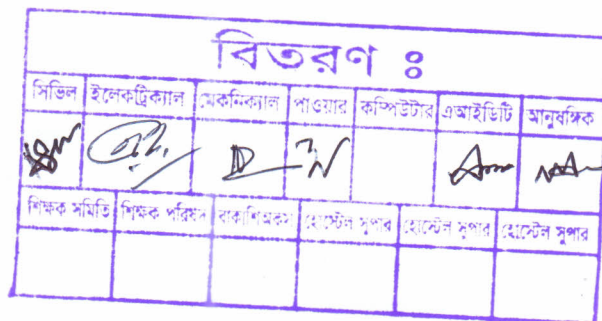 বিতরণ ঃ
সিভিল ইলেকট্রিক্যাল মেকনিক্যাল পাওয়ার কম্পিউটার এআইডিটি আনুষঙ্গিক
শিক্ষক সমিতি শিক্ষক পরিষদ হোস্টেল সুপার হোস্টেল সুপার হোস্টেল সুপার